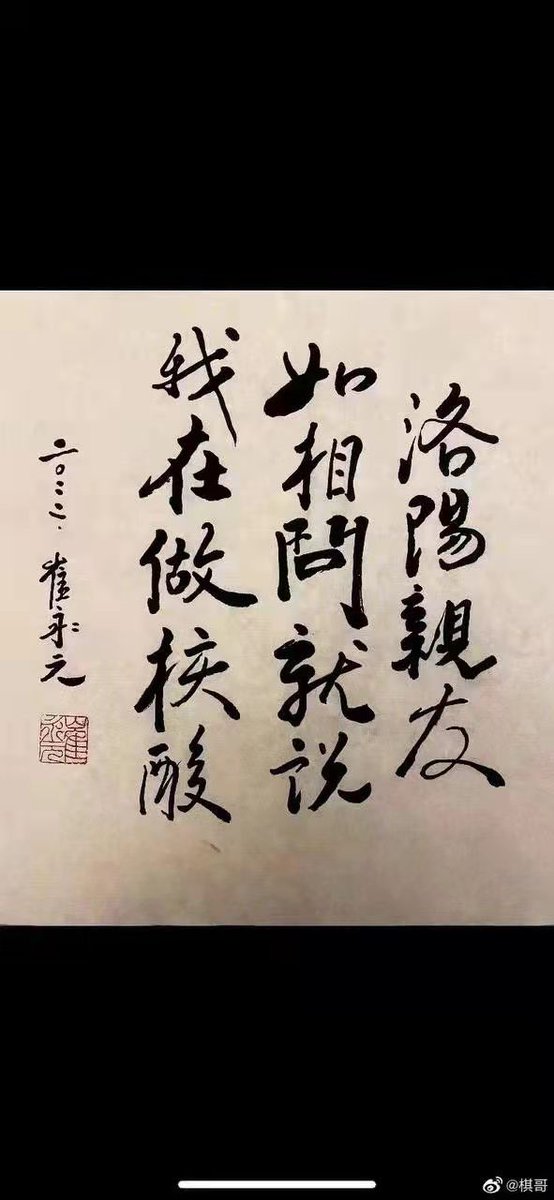 洛陽親友
如相問就说
我在做核酸
二〇二二.崔永元
崔永元
@棋哥